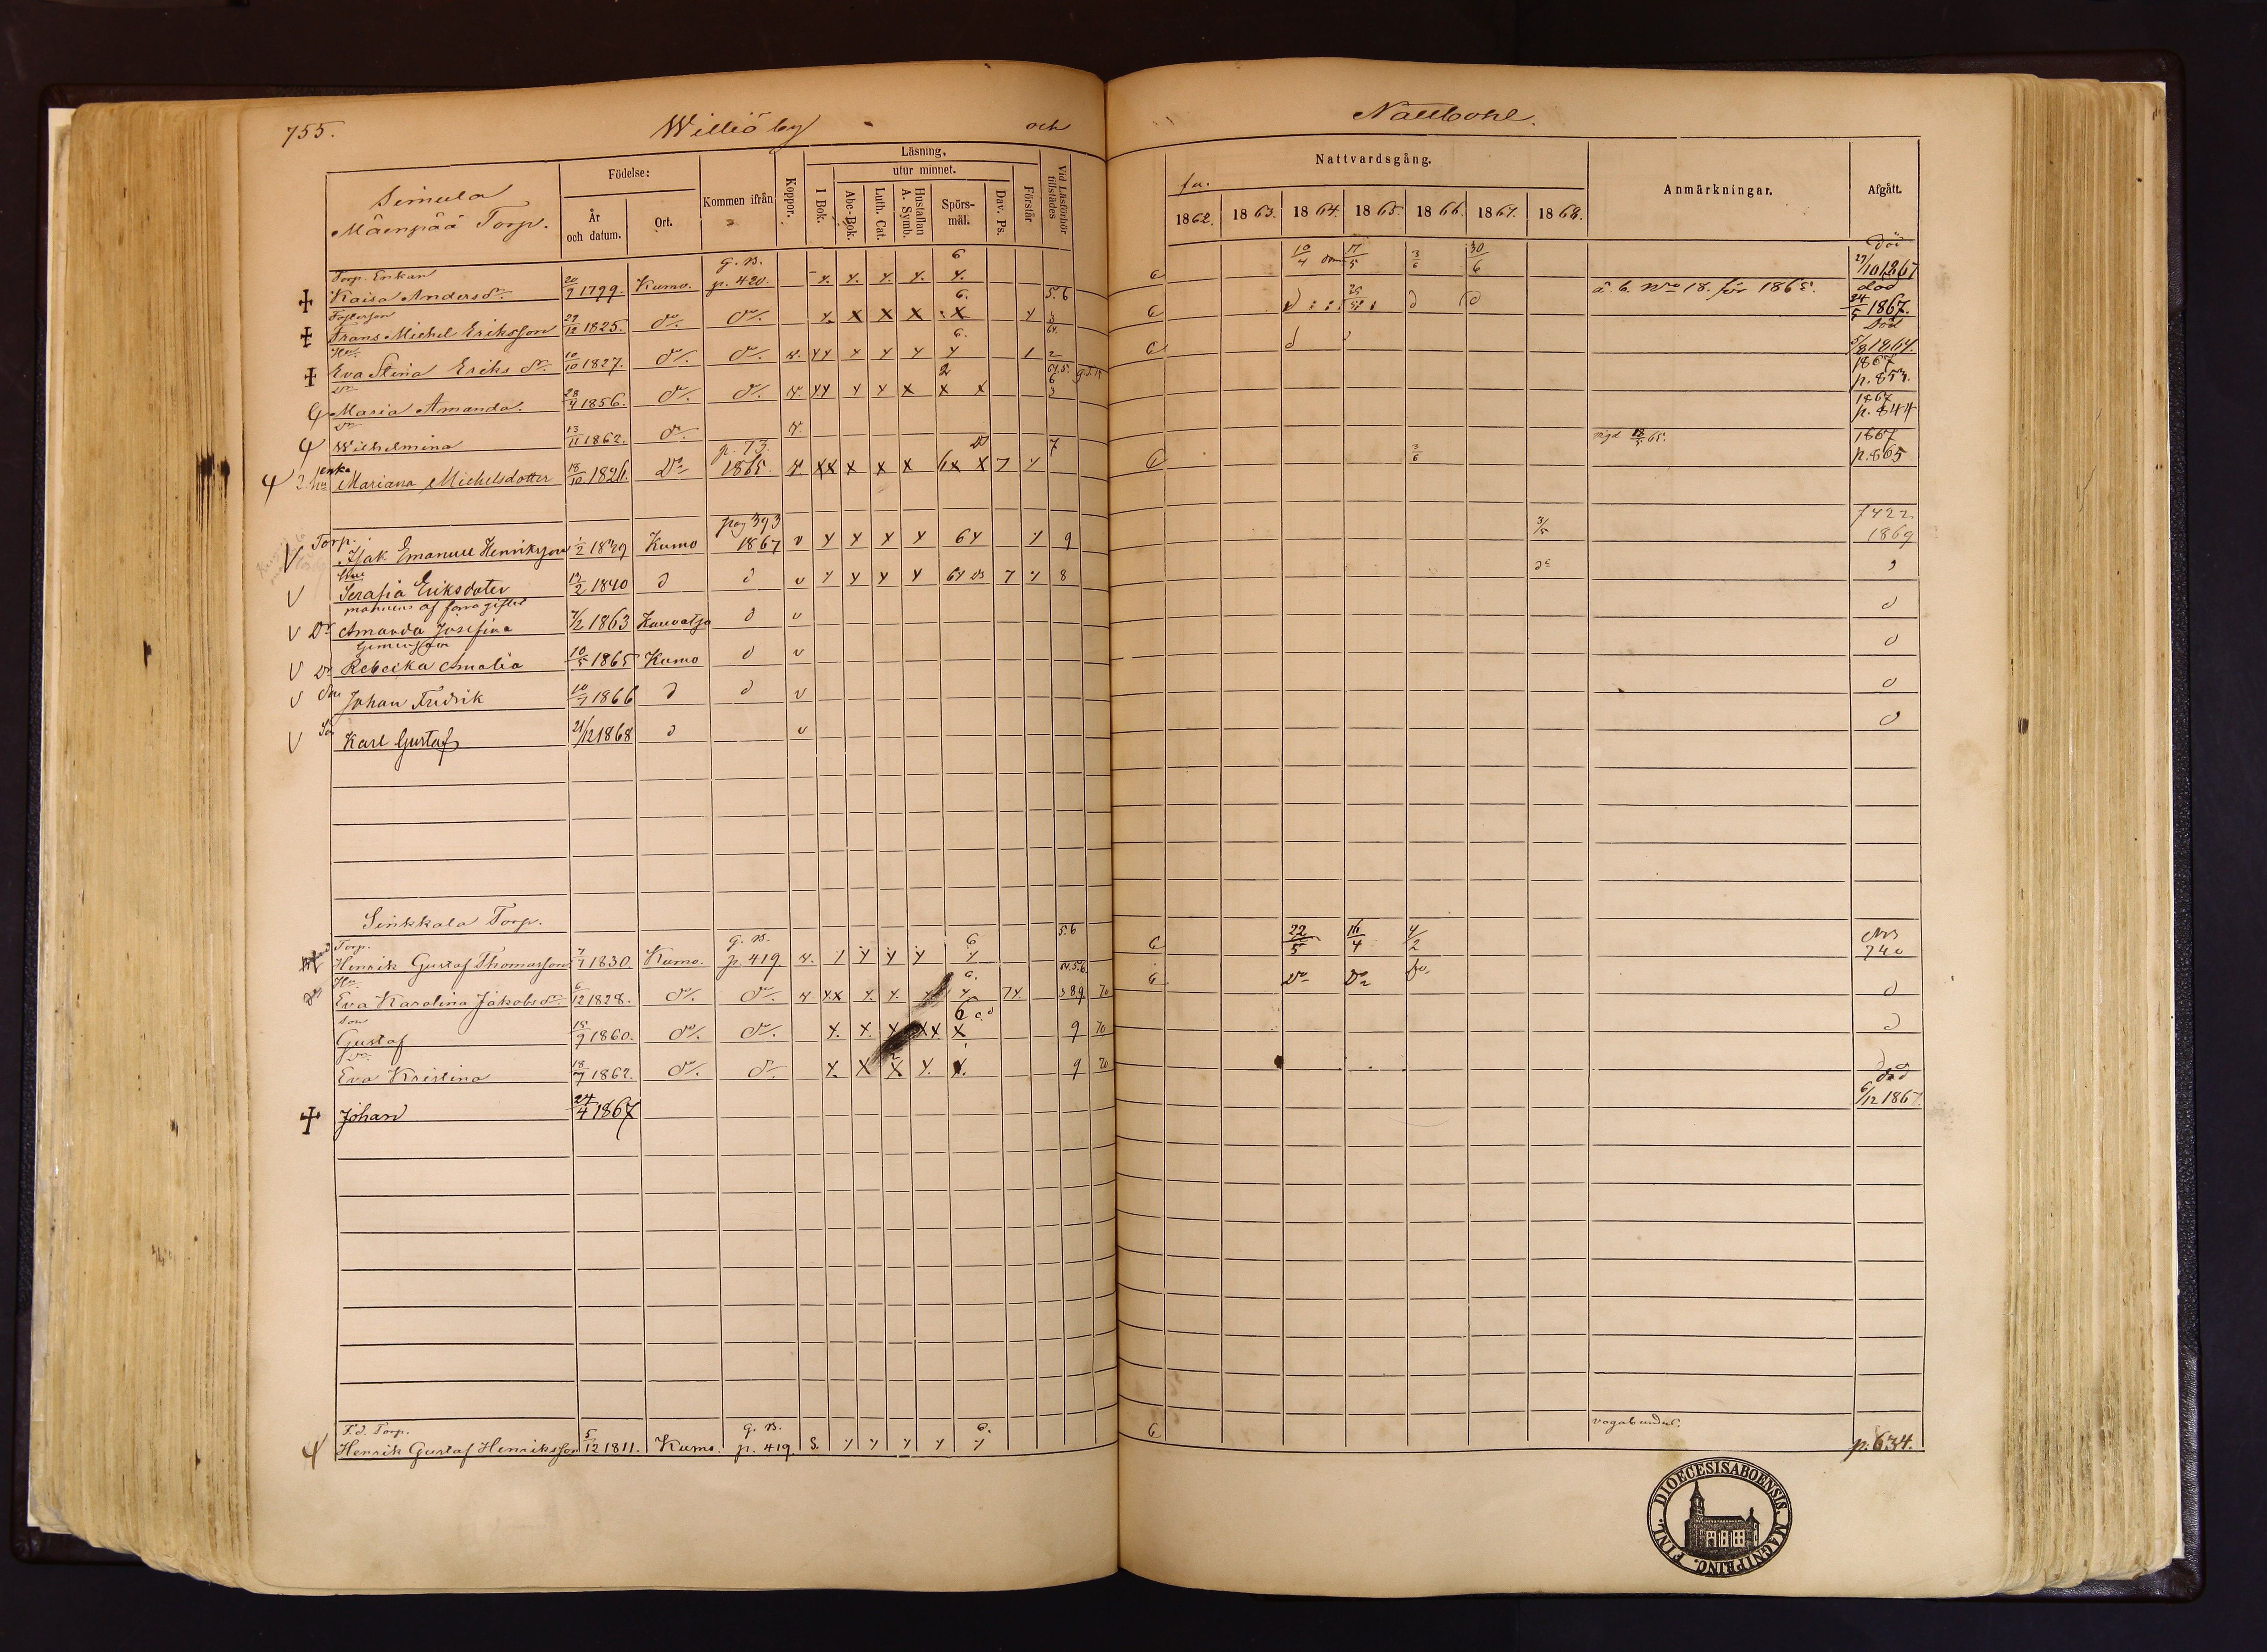 755. Williö by och Nattbohl.
Simula
Mäenpää Torp.
Födelse:
År och datum.
Ort.
Kommen ifrån
Koppor.
Läsning.
I Bok.
utur minnet.
Abc-Bok.
Luth. Cat.
Hustaflan A. Symb.
Spörs-mål.
Dav. Ps.
Förstår
Vid Läsförhör tillstädes
Nattvardsgång.
1862. 1863. 1864. 1865. 1866. 1867. 1868.
Anmärkningar.
Afgått.
Torp. Enkan g. B. 6 död
Kaisa Anders dr. 20/9 1799. Kumo. p. 420. y. y. y. y. y. 10/4 17/5 3/6 30/6 29/10 1867
Fosterson 6. 5.6 död
Frans Michel Eriksson 29/12 1825. do. do. y x x x x y 24/5 1867.
Hu. 6. död
Eva Stina Eriks dr. 10/10 1827. do. do. v. yy y y y y 5/8 1864.
Dr. 2 1867
Maria Amanda. 28/4 1856. do. do. v. yy y y x x x p. 857.
Dr. 1867
Wilhelmina 13/11 1862. do. v. p. 844
enka p. 73. 7 vigd 18/5 65. 1867
2. hu Mariana Michelsdotter 18/10 1826. Do 1865. v. xx x x x 6x x 7 y 3/6 p. 865
Torp. pag 393 3/5 1869
Isak Emanuel Henriksson 1/2 1839 Kumo 1867 v y y y y 6y y 9
Hu
Serafia Eriksdoter 13/2 1840 d d v y y y y 6y 7 y 8
mannens af förra giftet
Dr Amanda Josefina 7/2 1863 Kauvatsa d v
Gemensam
Dr Rebecka Amalia 10/5 1865 Kumo d v
Son Johan Fredrik 10/7 1866 d d v
So Karl Gustaf 21/12 1868 d v
Sinkkala Torp.
Torp. g. B. 6 5.6
Henrik Gustaf Thomasson 7/7 1830. Kumo. p. 419 v. y y y y y 22/5 16/4 4/2 740
Hu. 6.
Eva Karolina Jakobs dr. 6/12 1828. do. do. v yx y. y. y y 7y 389 70 Do Do Do
Son 6
Gustaf 15/9 1860. do. do. y. x. x xx x 9 70
Dr.
Eva Kristina 18/7 1862. do. do. y. x x y. x. 9 70
död
Johan 24/4 1867 6/12 1867.
F.d. Torp. g. B. 6. vagabund
Henrik Gustaf Henriksson 5/12 1811. Kumo. p. 419 S. y y y y y p. 634.
DIOECESIS ABOENSIS. MAGNI PRINC. FINL.